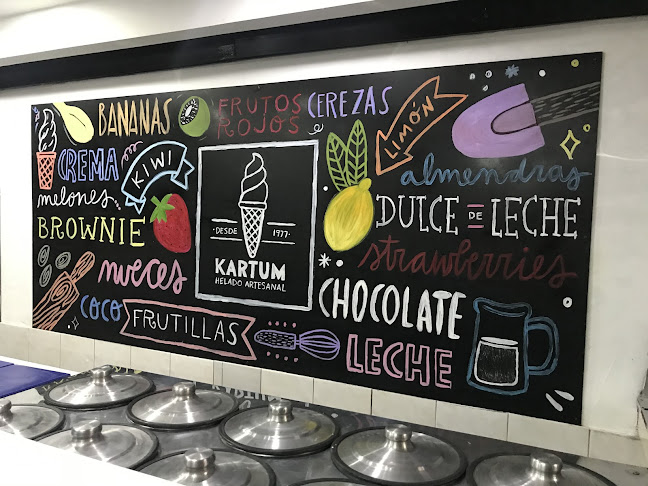 BANANAS
FRUTOS
ROJOS
CEREZAS
LIMÓN
CREMA
KIWI
almendras
melones
DULCE DE LECHE
BROWNIE
·DESDE 1977·
KARTUM
HELADO ARTESANAL
strawberries
nueces
CHOCOLATE
COCO
FRUTILLAS
LECHE